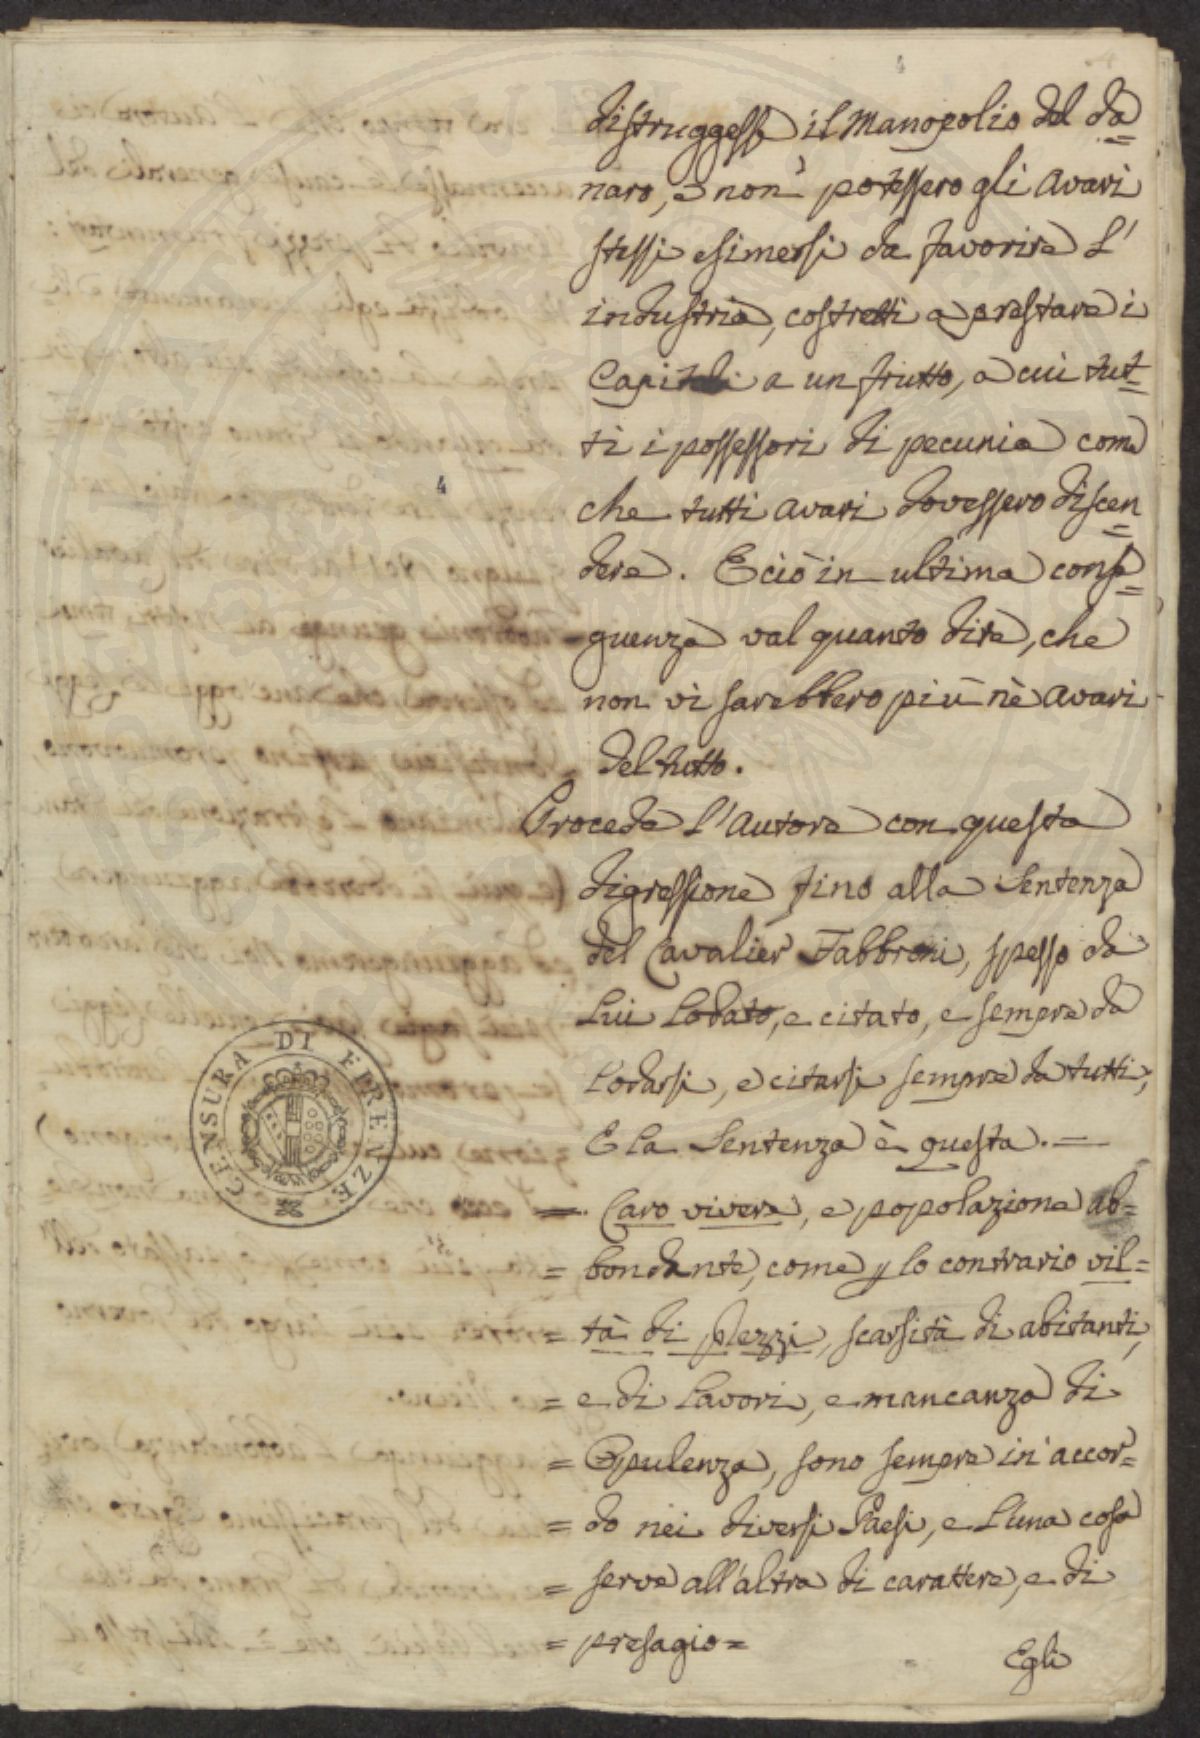 4
distruggesse il Manopolio del da=
naro, e non potessero gli Avari
stessi esimersi da favorire l'
industria, costretti a prestare i
Capitali a un frutto, a cui tut=
ti i possessori di pecunia come
che tutti avari dovessero discen=
dere. E ciò in ultima conse=
guenza val quanto dire, che
non vi sarebbero più nè avari
del tutto.
Procede l'Autore con questa
digressione fino alla Sentenza
del Cavalier Fabbroni, spesso da
Lui Lodato, e citato, e sempre da
Lodarsi, e citarsi sempre da tutti;
E la Sentenza è questa. —
= Caro vivere, e popolazione ab=
= bondante, come p lo contrario vil=
= tà di prezzi, scarsità di abitanti,
= e di Lavori, e mancanza di
= Opulenza, sono sempre in accor=
= do nei diversi Paesi, e l'una cosa
= serve all'altra di carattere, e di
= presagio =
Egli
4
CENSURA DI FIRENZE